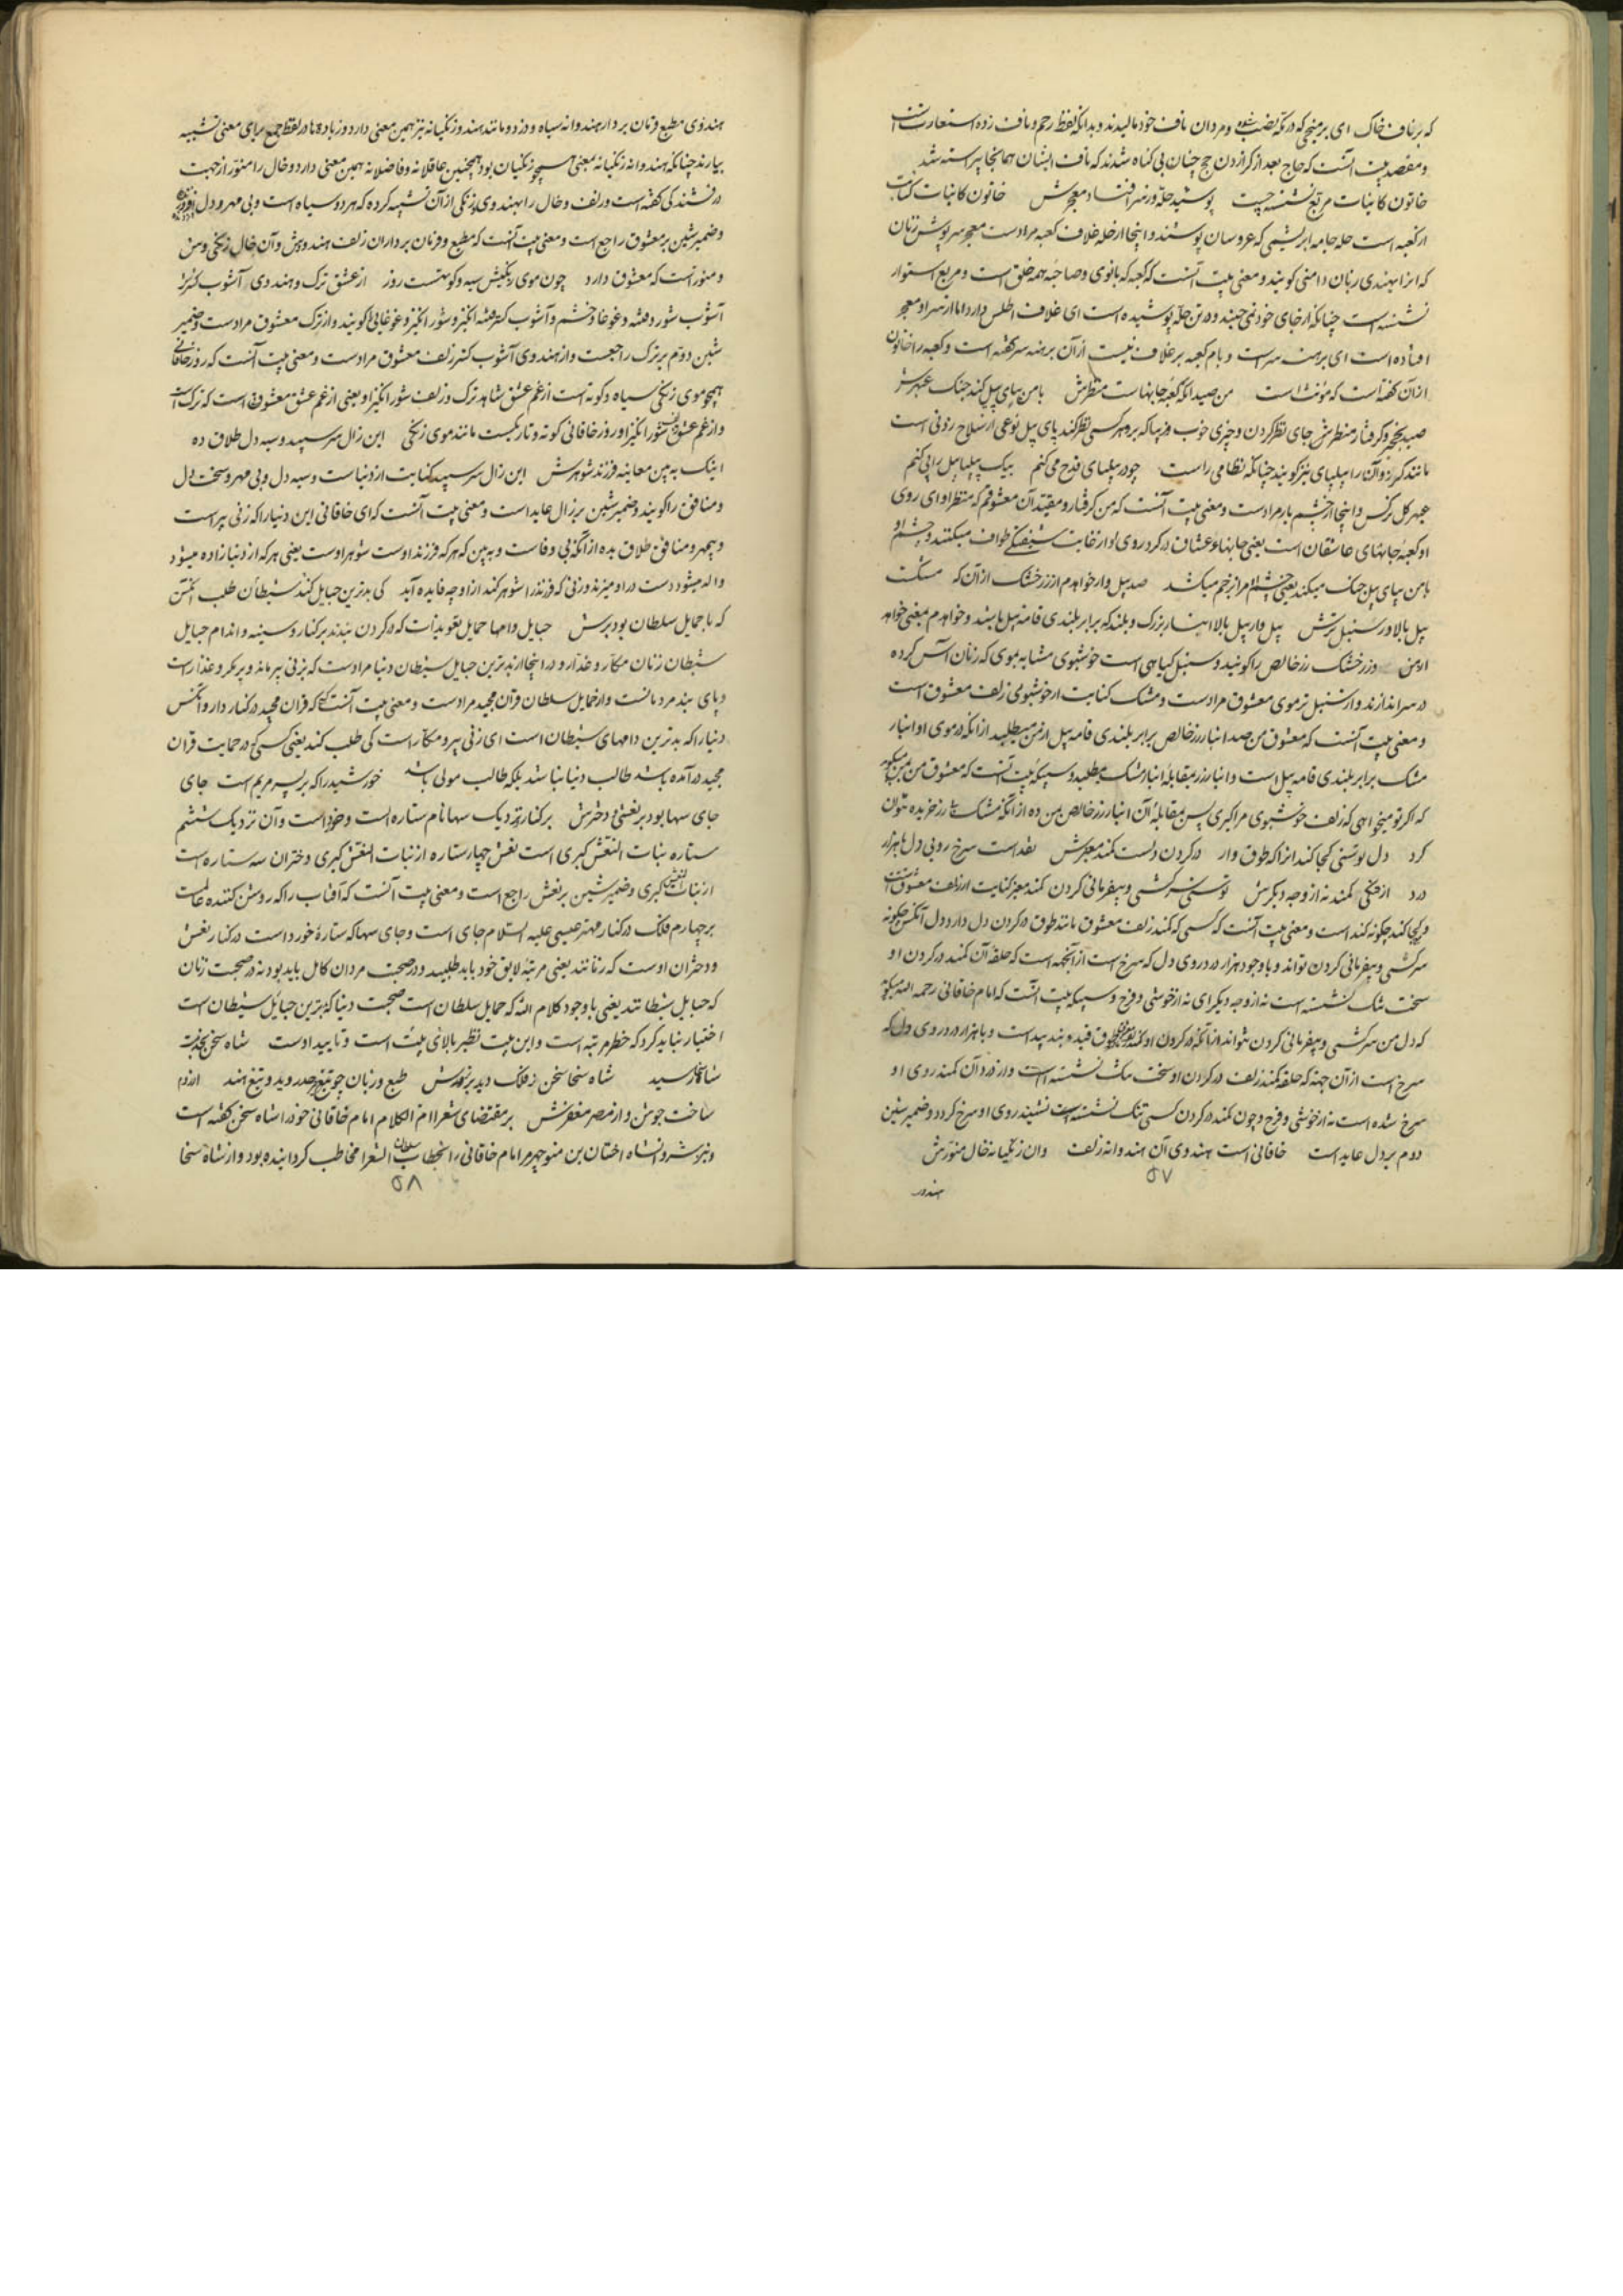 که بر ناف خاک ای بر میخی که در مکه نصب شده و مردان ناف خود مالیدند و بدانکه لفظ رحم و ناف زده استعارتست
و مقصد بیت آنست که حاج بعد از گزاردن حج چنان بی گناه شدند که ناف ایشان همانجا پیراسته شد
خاتون کاینات مربع نشسته چیست پوشیده حله و ز سر افتاده معجرش خاتون کاینات کنایت
از کعبه است حله جامه ابریشمی که عروسان پوشند و اینجا از حله غلاف کعبه مرادست معجر سرپوش زنان
که انرا بهندی زبان دامنی گویند و معنی بیت آنست که کعبه که بانوی و صاحبه همه خلق است و مربع استوار
نشسته است چنانکه از جای خود نمی جنبد و در تن حله پوشیده است ای غلاف اطلس دارد اما از سر او معجر
افتاده است ای برهنه سر است و بام کعبه بر غلاف نیست از آن برهنه سر گفته است و کعبه را خاتون
از آن گفته است که مؤنث است من صید انکه کعبه جانهاست منظرش با من بپای پیل کند جنگ عبهرش
صید نخجیر و گرفتار منظرش جای نظر کردن و چیزی خوب و زیبا که بر وی هر کسی نظر کند پای پیل نوعی از سلاح رزنی است
مانند گرز و آن را پیلپای نیز گویند چنانکه نظامی راست چو در پیلپای قدح می کنم بیک پیلپا پیل را پی کنم
عبهر گل نرگس و اینجا از چشم یار مرادست و معنی بیت آنست که من گرفتار و مقید آن معشوقم که منظر او ای روی
او کعبه جانهای عاشقان است یعنی جانها و عشاق در گرد روی او از غایت شیفتگی طواف میکنند و چشم او
با من بپای پیل جنگ میکند یعنی چشم او مرا زخم میکشد صد پیل وار خواهدم از زر خشک از آن که مشکست
پیل بالا و ر سنبل ترش پیل وار پیل بالا انبار بزرگ و بلند که برابر بلندی قامه پیل باشد و خواهدم بمعنی خواهد
از من و زر خشک زر خالص را گویند و سنبل گیاهی است خوشبوی مشابه موی که زنان آس کرده
در سر اندازند و از سنبل تر موی معشوق مرادست و مشک کنایت از خوشبوی زلف معشوق است
و معنی بیت آنست که معشوق من صد انبار زر خالص برابر بلندی قامه پیل از من میطلبد از آنکه در موی او انبار
مشک برابر بلندی قامه پیل است و انبار زر بمقابله انبار مشک میطلبد و سپیکه بیت آنست که معشوق من بمن میگوید
که اگر تو میخواهی که زلف خوشبوی مرا گیری پس بمقابله آن انبار زر خالص بمن ده از آنکه مشک بی زر خریده نتوان
کرد دل توسنی کجا کند انرا که طوق وار در گردن دلست کمند معنبرش نقد است سرخ رویی دل با هزار
درد از تنگی کمند نه از وجه دیگرش توسنی سرکشی و بیفرمانی کردن کمند معنبر کنایت از زلف معشوق است
و کجا کند چگونه کند است و معنی بیت آنست که کسی که کمند زلف معشوق مانند طوق در گردن دل دارد دل آنکس چگونه
سرکشی و بیفرمانی کردن تواند و با وجود هزار درد روی دل که سرخ است از آنجهه است که حلقه آن کمند در گردن او
سخت تنگ نشسته است نه از وجه دیگر ای نه از خوشی و فرح و سپیکه بیت آنست که امام خاقانی رحمه الله میگوید
که دل من سرکشی و بیفرمانی کردن نتواند از آنکه در گردن او کمند زلف معشوق طوق قید و بند پیداست و با هزار درد روی دل که
سرخ است از آن جهه که حلقه کمند زلف در گردن او سخت تنگ نشسته است و از درد آن کمند روی او
سرخ شده است نه از خوشی و فرح و چون کمند در گردن کسی تنگ نشسته است نشیند روی او سرخ گردد و ضمیر شین
دوم بر دل عاید است خاقانی است هندوی آن هندوانه زلف وان زنگیانه خال منورش
۵۷
هندوی
هندوی مطیع و فرمان بردار هندوانه سیاه و دزد و مانند هند و زنگیانه نیز همین معنی دارد و زیاده ها در لفظ جمع برای معنی تشبیه
بیارند چنانکه هندوانه زنگیانه معنی همچو زنگیان بود همچنین عاقلانه و فاضلانه همین معنی دارد و خال را منور از جهت
درفشندگی گفته است و زلف و خال را بهندوی و زنگی از آن تشبیه کرده که هر دو سیاه است و بی مهر و دل
و ضمیر شین بر معشوق راجع است و معنی بیت آنست که مطیع و فرمان برداران زلف هندووش و آن خال زنگی وش
و منور است که معشوق دارد چون موی زنگیش سیه و کوتهست روز از عشق ترک و هندوی آشوب گسترش
آشوب شور و فتنه و غوغا و خشم و آشوب گستر فتنه انگیز و شور انگیز و غوغایی گویند و از ترک معشوق مرادست و ضمیر
شین دوم بر ترک راجعست و از هندوی آشوب گستر زلف معشوق مرادست و معنی بیت آنست که روز خاقانی
همچو موی زنگی سیاه و کوته است از غم عشق شاهد ترک و زلف شور انگیز او یعنی از غم عشق معشوق است که ترک است
و از غم عشق زلف شور انگیز او روز خاقانی کوته و تاریکست مانند موی زنگی این زال سر سپید و سیه دل طلاق ده
اینک ببین معاینه فرزند شوهرش این زال سر سپید کنایت از دنیاست و سیه دل و بی مهر و سخت دل
و منافق را گویند و ضمیر شین بر زال عاید است و معنی بیت آنست که ای خاقانی این دنیا را که زنی پیر است
و بیمهر و منافق طلاق بده از آنکه بی وفاست و ببین که هر که فرزند اوست شوهر اوست یعنی هر که از دنیا زاده میشود
واله میشود دست در او میزند و زنی که فرزند را شوهر کند از او چه فایده آید کی بدترین حبایل شیطان کند طلب آنکس
که با حمایل سلطان بود برش حبایل دامها حمایل تعویذات که در گردن بندند بر کنار و سینه و اندام حبایل
شیطان زنان مکار و غدار و در اینجا از بدترین حبایل شیطان دنیا مرادست که بزنی پیر ماند و پر مکر و غدار است
و پای بند مردمانست و از حمایل سلطان قرآن مجید مرادست و معنی بیت آنست کسی که قرآن مجید در کنار دارد آنکس
دنیا را که بدترین دامهای شیطان است ای زنی پیر و مکار است کی طلب کند یعنی کسی که در حمایت قرآن
مجید در آمده باشد طالب دنیا نباشد بلکه طالب مولی باشد خورشید را که بر پسر مریم است جای
جای سها بود بر نعش و دخترش بر کنار و نزدیک سها نام ستاره است و خورد است و آن نزدیک ششم
ستاره بنات النعش کبری است نعش چهار ستاره از بنات النعش کبری و دختران سه ستاره است
از بنات النعش کبری و ضمیر شین بر نعش راجع است و معنی بیت آنست که آفتاب را که روشن کننده عالمست
بر چهارم فلک در کنار مهتر عیسی علیه السلام جای است و جای سها که ستاره خورد است در کنار نعش
و دختران اوست که زنانند یعنی مرتبه لایق خود باید طلبید و در صحبت مردان کامل باید بود نه در صحبت زنان
که حبایل شیطانند یعنی با وجود کلام الله که حمایل سلطان است صحبت دنیا که بدترین حبائل شیطان است
اختیار نباید کرد که خطر مرتبه است و این بیت نظیر بالای بیت است و تایید اوست شاه سخن بخدمت
شاه سخا رسید شاه سخا سخن ز فلک دید برترش طبع و زبان چو تیغ حدر وید و تیغ هند از دم
ساخت جوشن و از مصر مغفرش بر مقتضای شعرا امرا الکلام امام خاقانی خود را شاه سخن گفته است
و نیز شروانشاه اخستان بن منوچهر مر امام خاقانی را بخطاب سلطان الشعرا مخاطب گردانیده بود و از شاه سخا
۵۸